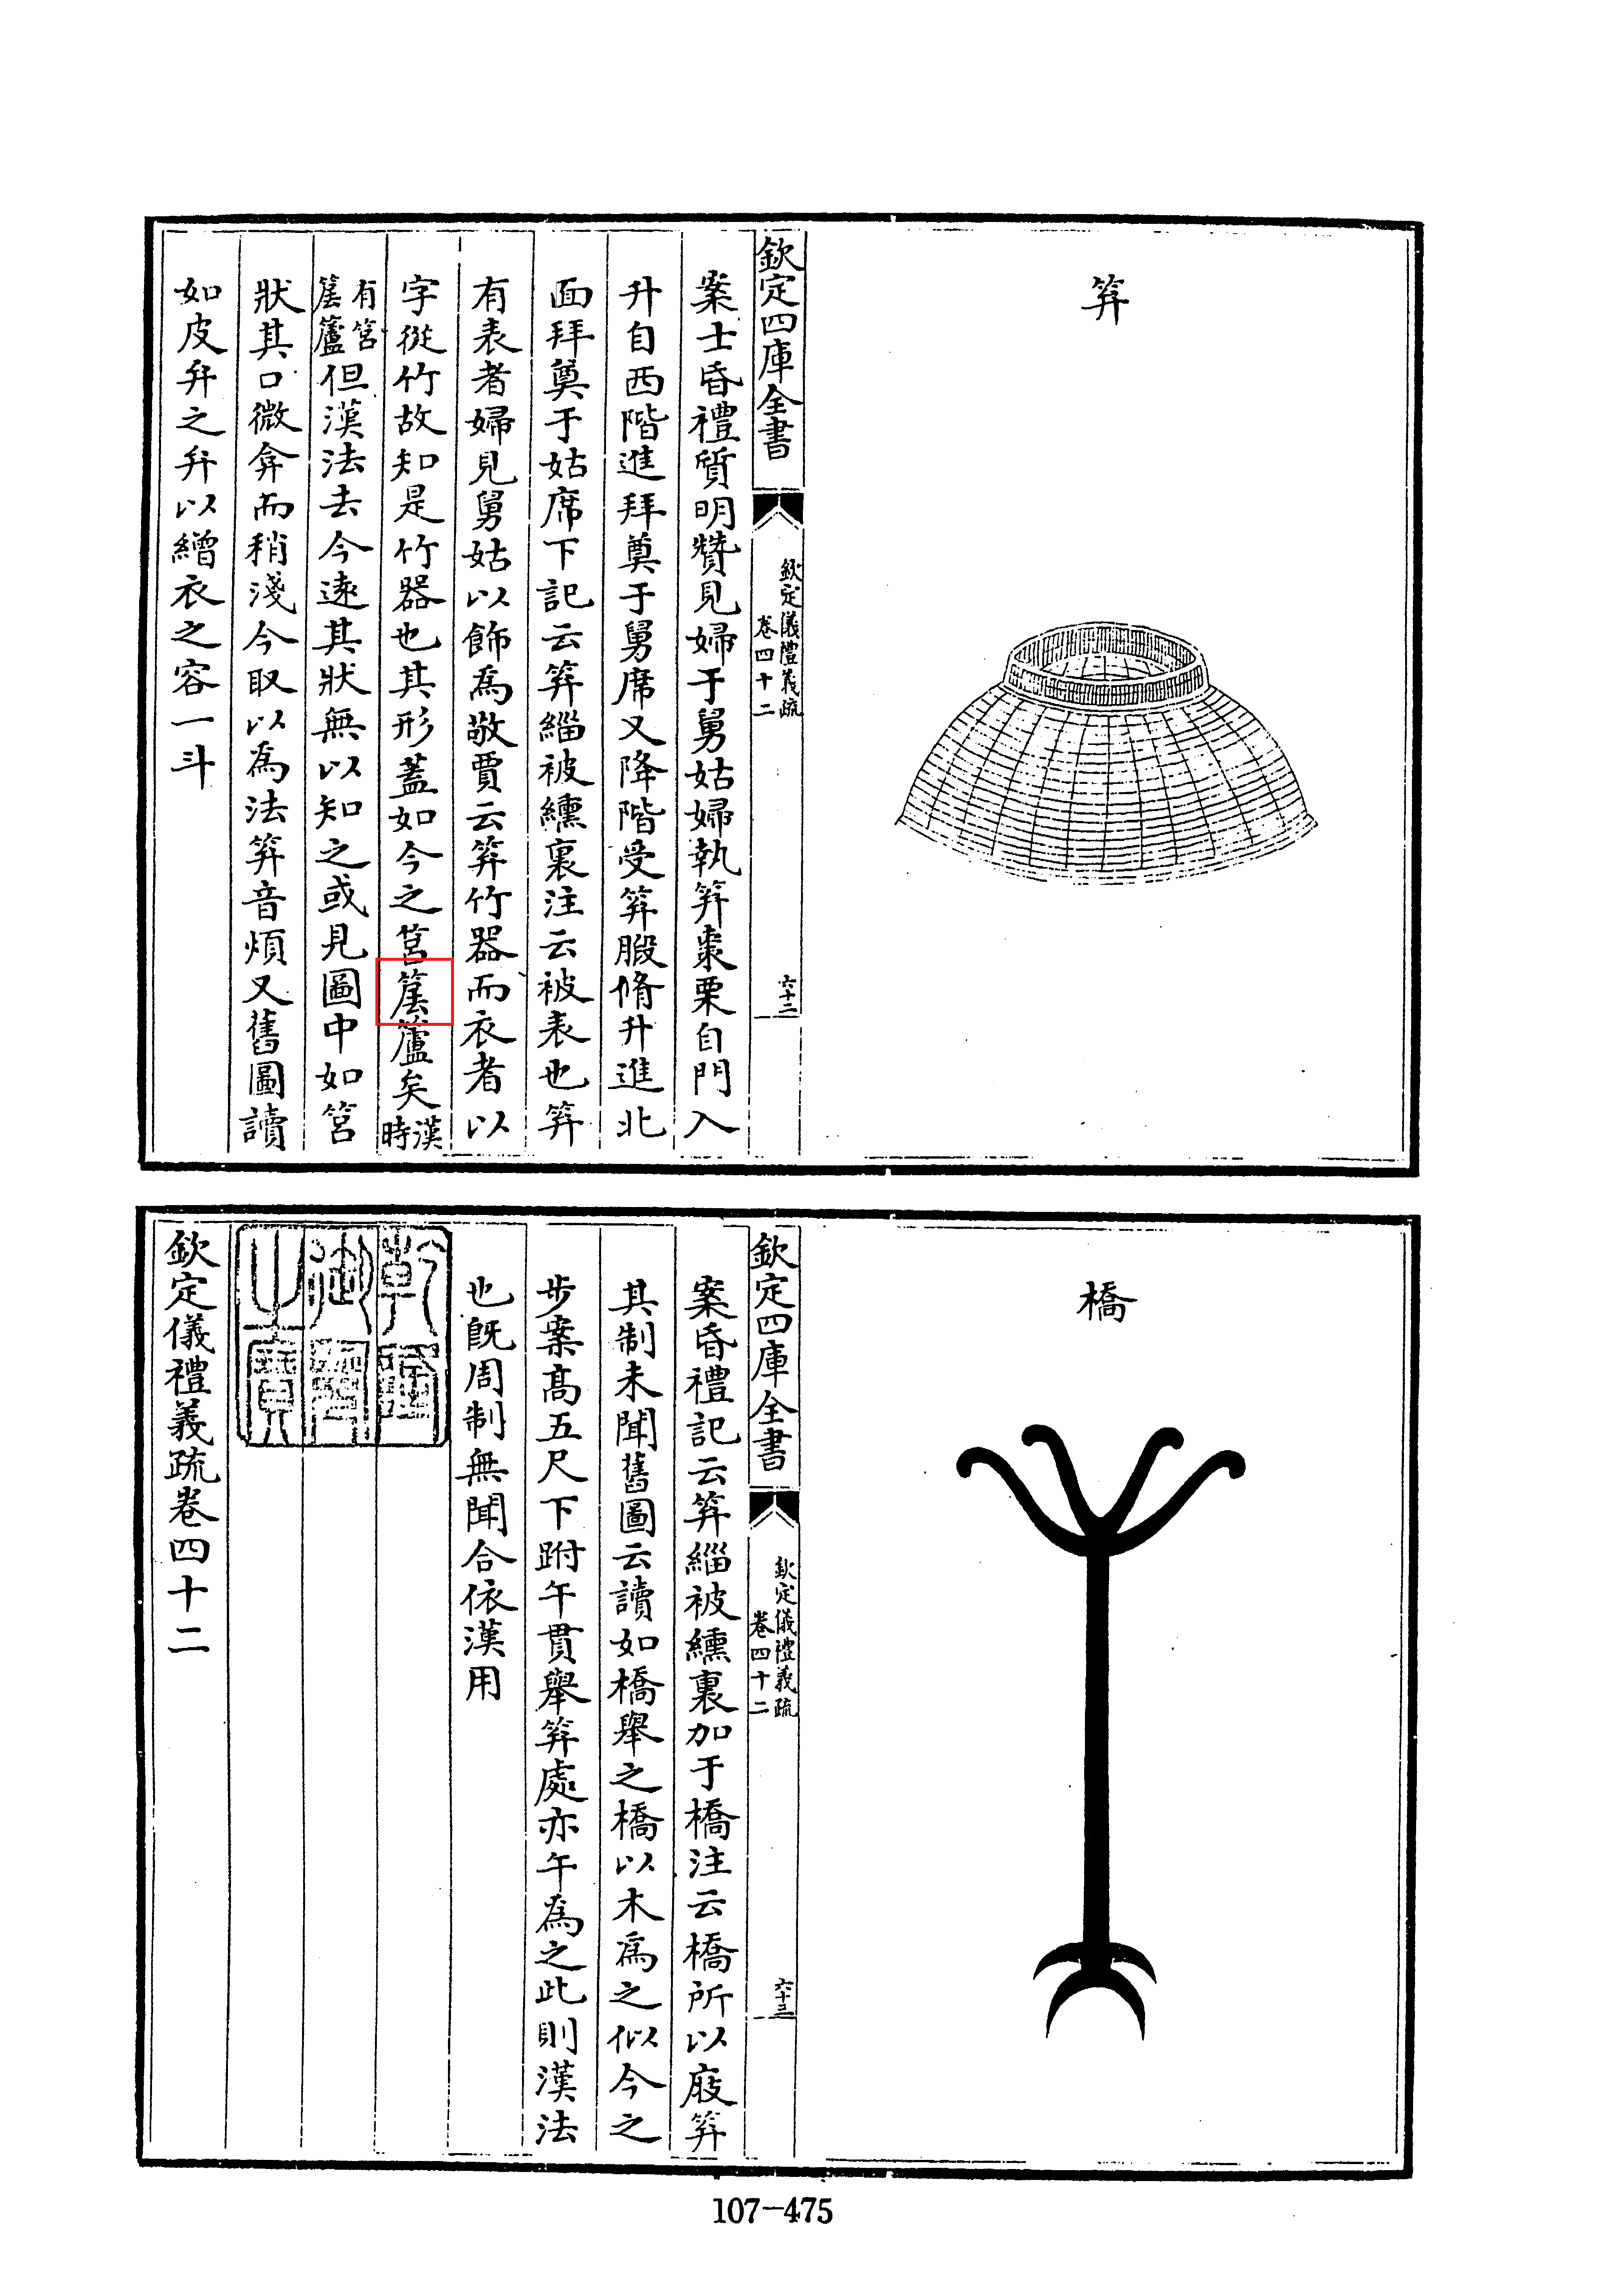 笲
欽定四庫全書
欽定儀禮義疏
卷四十二
六十二
案士昏禮質明贊見婦于舅姑婦執笲棗栗自門入
升自西階進拜奠于舅席又降階受笲腶脩升進北
面拜奠于姑席下記云笲緇被纁裏注云被表也笲
有表者婦見舅姑以飾為敬賈云笲竹器而衣者以
字從竹故知是竹器也其形蓋如今之筥𥬔籚矣漢時
有筥𥬔籚但漢法去今遠其狀無以知之或見圖中如筥
狀其口微弇而稍淺今取以為法笲音煩又舊圖讀
如皮弁之弁以繒衣之容一斗
橋
欽定四庫全書
欽定儀禮義疏
卷四十二
六十三
案昏禮記云笲緇被纁裏加于橋注云橋所以庪笲
其制未聞舊圖云讀如橋舉之橋以木為之似今之
步案髙五尺下跗午貫舉笲處亦午為之此則漢法
也既周制無聞合依漢用
乾隆御覽之寶
欽定儀禮義疏卷四十二
107-475